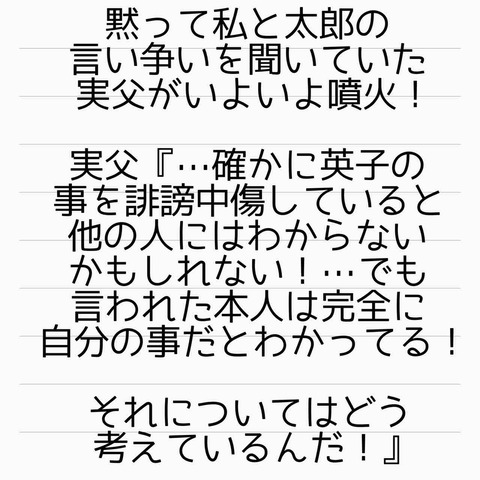 黙って私と太郎の
言い争いを聞いていた
実父がいよいよ噴火！
実父『…確かに英子の
事を誹謗中傷していると
他の人にはわからない
かもしれない！…でも
言われた本人は完全に
自分の事だとわかってる！
それについてはどう
考えているんだ！』